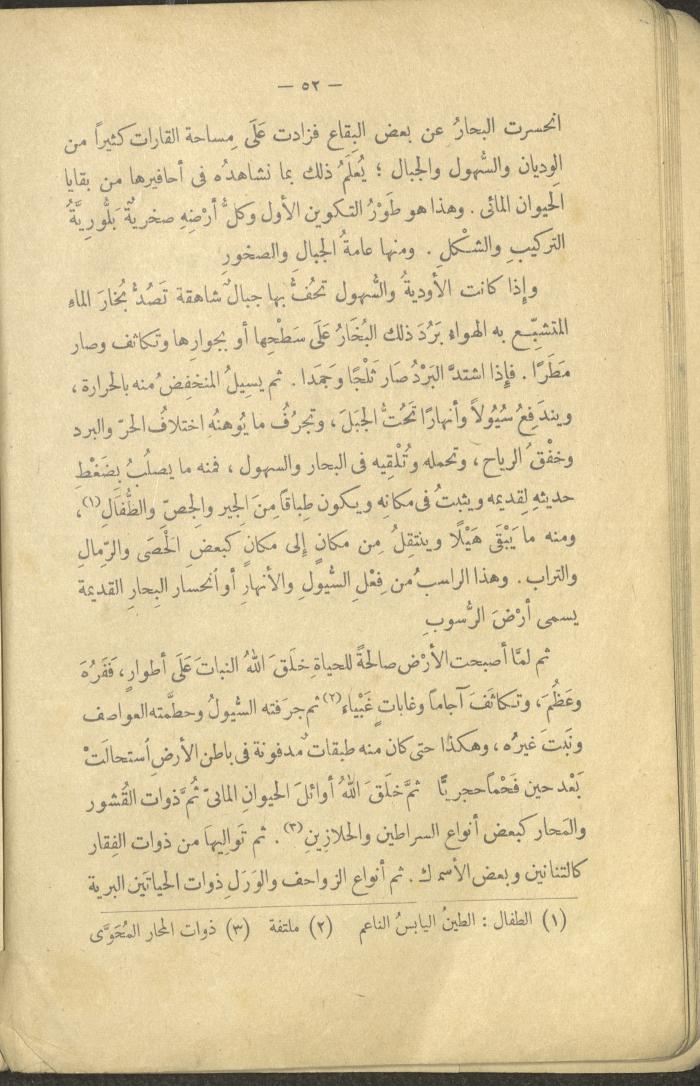 — ٥٢ —
انحسرت البحارُ عن بعض البِقاع فزادت عَلَى مِساحة القارات كثيراً من
الوديان والسُّهول والجبال ؛ يُعلَمُ ذلك بما نشاهدُه فى أحافيرها من بقايا
الحيوان المائى . وهذا هو طَوْرُ التكوين الأول وكلُّ أرْضِهِ صخريةٌ بَلُّورِيَّةُ
التركيبِ والشكْلِ . ومنها عامةُ الجبالِ والصخورِ
وإذا كانت الأوديةُ والسُّهول تحُفُّ بها جبالٌ شاهقة تَصُدُّ بُخارَ الماءِ
المتشبِّعِ به الهواءِ بَرَدَ ذلك البُخَارُ عَلَى سَطْحِها أو بجوارِها وتكاثف وصار
مَطَرًا . فإذا اشتدَّ البَرْدُ صَار ثَلْجًا وَجَمَدا . ثم يسيلُ المنخفِضُ منه بالحرارة ،
ويندَفِعُ سُيُولاً وأنهارًا تَحُتُّ الجبَلَ ، وتجرُفُ ما يُوهنهُ اختلافُ الحرّ والبرد
وخفْقُ الرياح ، وتحمله وتُلْقيه فى البحار والسهول ، فمنه ما يصلُبُ بِضَغْطِ
حديثِهِ لِقديمه ويثبتُ فى مكانِه ويكون طِباقاً مِنَ الجير والجِصّ والطُّفَالِ (١) ،
ومنه ما يَبْقَى هَيْلًا وينتقِلُ مِن مكانٍ إلى مكانٍ كبعضِ الحَصَى والرِّمالِ
والتراب . وهذا الراسبُ من فِعْلِ السُّيولِ والأنهارِ أو انحسار البِحارِ القديمة
يسمى أرْضَ الرُّسوبِ
ثم لمَّا أصبحت الأرْض صالحةً للحياةِ خلَقَ اللهُ النباتَ عَلَى أطوارٍ ، فَفَرُهَ
وعَظُمَ ، وتكاثَفَ آجاماً وغاباتٍ غَبْياءَ (٢) ثم جرَفته السُّيولُ وحطَّمته العواصف
ونَبَتَ غيرُه ، وهكذا حتى كان منه طبقات مدفونة فى باطن الأرضِ استحالَتْ
بَعْد حين فَحْماً حجريًّا ثمَّ خلَقَ اللهُ أوائلَ الحيوانِ المائىّ ثُمَّ ذوات القُشور
والمَحار كبعض أنواع السراطين والحلازينِ (٣) . ثم تَوالِيهَا من ذوات الفِقار
كالتنانين وبعض الأسمك . ثم أنواع الزواحف والوَرَلِ ذوات الحياتَين البرية
(١) الطفال : الطينُ اليابسُ الناعم (٢) ملتفة (٣) ذوات المحار المُحَوَّى